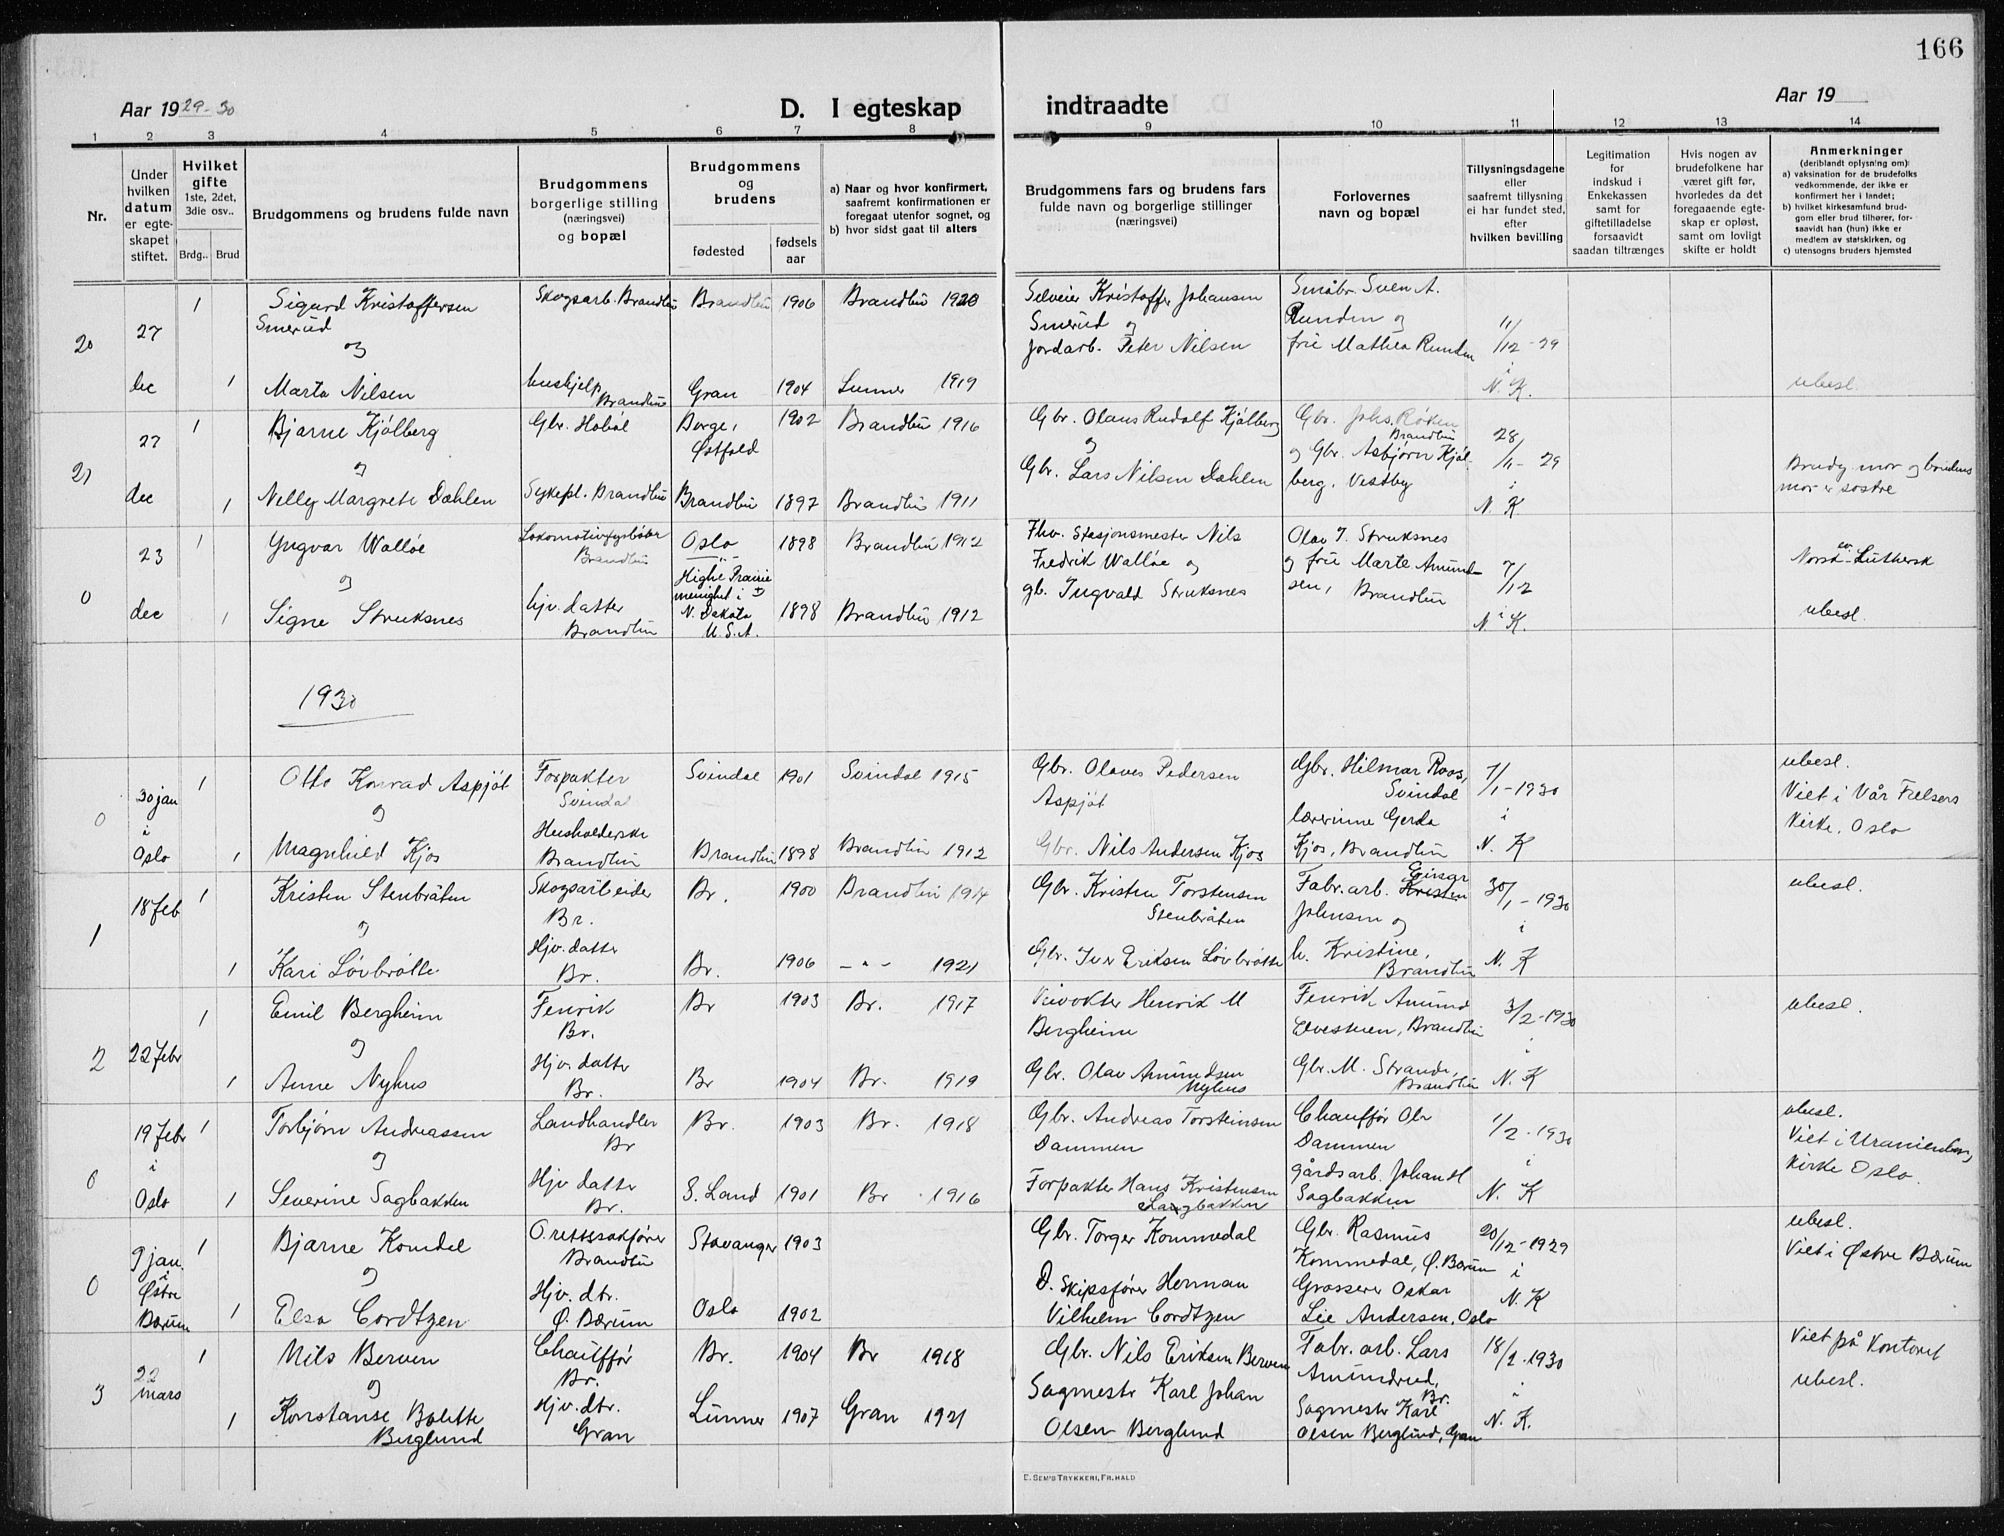 166
Aar 1929-30
D. I egteskap
indtraadte
Aar 19
1 2 3 4 5 6 7 8 9 10 11 12 13 14
Nr.
Under hvilken datum er egte-skapet stiftet.
Hvilket gifte
1ste, 2det, 3die osv..
Brdg.. Brud
Brudgommens og brudens fulde navn
Brudgommens borgerlige stilling (næringsvei) og bopæl
Brudgommens og brudens
fødested
fødsels aar
a) Naar og hvor konfirmert, saafremt konfirmationen er foregaat utenfor sognet, og
b) hvor sidst gaat til alters
Brudgommens fars og brudens fars fulde navn og borgerlige stillinger (næringsvei)
Forlovernes navn og bopæl
Tillysningsdagene eller saafremt tillysning ei har fundet sted, efter hvilken bevilling
Legitimation for indskud i Enkekassen samt for giftetilladelse forsaavidt saadan tiltrænges
Hvis nogen av brudefolkene har været gift før, hvorledes da det foregaaende egte-skap er opløst, samt om lovligt skifte er holdt
Anmerkninger
(deriblandt oplysning om):
a) vaksination for de brudefolks vedkommende, der ikke er konfirmert her i landet;
b) hvilket kirkesamfund brud-gom eller brud tilhører, for-saavidt han (hun) ikke er medlem av statskirken, og
c) utensogns bruders hjemsted
20 27 dec 1 Sigurd Kristoffersen Smerud Skogsarb. Brandbu Brandbu 1906 Brandbu 1920 Selveier Kristoffer Johansen Smerud og Småbr. Sven A. Runden og 11/12-29
og
1 Marta Nilsen hushjelp Brandbu Gran 1904 Lunner 1919 Jordarb. Peter Nilsen frue Mathea Runden i N. K. ubesl.
21 27 dec 1 Bjarne Kjølberg Gbr. Hobøl Borge, Østfold 1902 Brandbu 1916 Gbr. Olaus Rudolf Kjølberg Gbr. Johs. Røken Brandbu 28/11-29
og
1 Nelly Margrete Dæhlen Sykepl. Brandbu Brandbu 1897 Brandbu 1911 Gbr. Lars Nilsen Dæhlen og Gbr. Asbjørn Kjølberg, Vestby i N. K. Brudg. mor og brudens mor er søstre
0 23 dec 1 Yngvar Walløe Lokomotivfyrbøter Brandbu Oslo 1898 Brandbu 1912 Fhv. Stasjonsmester Nils Fredrik Walløe og Olav I. Struksnes 7/12 Norsk ev. Luthersk
og
1 Signe Struksnes hjv. datter Brandbu Highe Prairie menighet i N. Dakota U.S.A. 1898 Brandbu 1912 gb. Ingvald Struksnes og frue Marte Amundsen, Brandbu i N. K. ubesl.
1930
0 30 jan i Oslo 1 Otto Konrad Aspjøt Forpakter Svindal Svindal 1901 Svindal 1915 Gbr. Olaves Pedersen Aspjøt Gbr. Hilmar Roos, Svindal 7/1-1930 ubesl. Viet i Vår Frelsers Kirke, Oslo
og
1 Magnhild Kjos Husholderske Brandbu Brandbu 1898 Brandbu 1912 Gbr. Nils Andersen Kjos lærerinne Gerda Kjos, Brandbu i N. K
1 18 feb 1 Kristen Stenbråten Skogsarbeider Br. Br. 1900 Brandbu 1914 Gbr. Kristen Torstensen Stenbråten Fabr. arb. Kristen Einar Johnsen og 30/1-1930 ubesl.
og
1 Kari Løvbrøtte Hjv. datter Br. Br. 1906 -"- 1921 Gbr. Iver Eriksen Løvbrøtte h. Kristine, Brandbu i N. K
2 22 febr 1 Emil Bergheim Fenrik Br. Br 1903 Br. 1917 Henrik M Bergheim Fenrik Amund Elvestuen, Brandbu 3/2-1930 ubesl.
og
1 Anne Nyhus Hjv. datter Br. Br 1904 Br. 1919 Gbr. Olav Amundsen Nyhus Gbr. M. Strande, Brandbu i N. K
0 19 febr i Oslo 1 Torbjørn Andreassen Landhandler Br Br. 1903 Br. 1918 Gbr. Andreas Torsteinsen Dammen Chauffør Ole Dammen 1/2-1930 ubesl. Viet i Uranienborg Kirke Oslo.
og
1 Severine Sagbakken Hjv datter Br. S. Land 1901 Br 1916 Forpakter Hans Kristensen Sagbakken gårdsarb. Johan H Sagbakken i N. K
0 9 jan. i Østre Bærum 1 Bjarne Komdal O.rettssakfører Brandbu Stavanger 1903 Gbr. Torger Kommedal Gbr. Rasmus Kommedal, Ø. Bærum 20/12-1929 ubesl. Viet i Østre Bærum
og
1 Elsa Cordtzen Hjv. dtr. Ø. Bærum Oslo 1902 D. Skipsfører Herman Vilhelm Cordtzen Grosserer Oskar Lie Andersen, Oslo i N. K
3 22 mars 1 Nils Berven Chauffør Br. Br. 1904 Br 1918 Gbr. Nils Eriksen Berven Fabr. arb. Lars Amundrud, Br. 18/2-1930 Viet på Kontoret
og
1 Konstanse Bolette Berglund Hjv. dtr. Gran Lunner 1907 Gran 1921 Sagmestr Karl Johan Olsen Berglund Sagmestr Karl Olsen Berglund, Gran i N. K. ubesl.
E. SEM'S TRYKKERI, FR.HALD